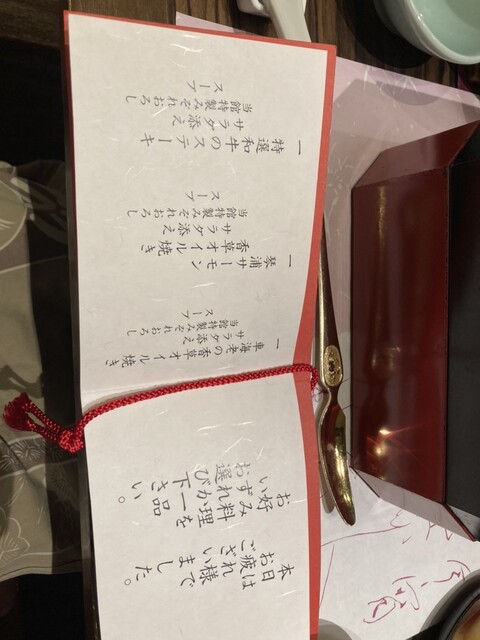 本日は
お疲れ様で
ございました。
お好み料理を
いずれか一品
お選び下さい。
一
車海老の香草オイル焼き
サラダ添え
当館特製みぞれおろし
スープ
一
琴浦サーモン
香草オイル焼き
サラダ添え
当館特製みぞれおろし
スープ
一
特選和牛のステーキ
サラダ添え
当館特製みぞれおろし
スープ